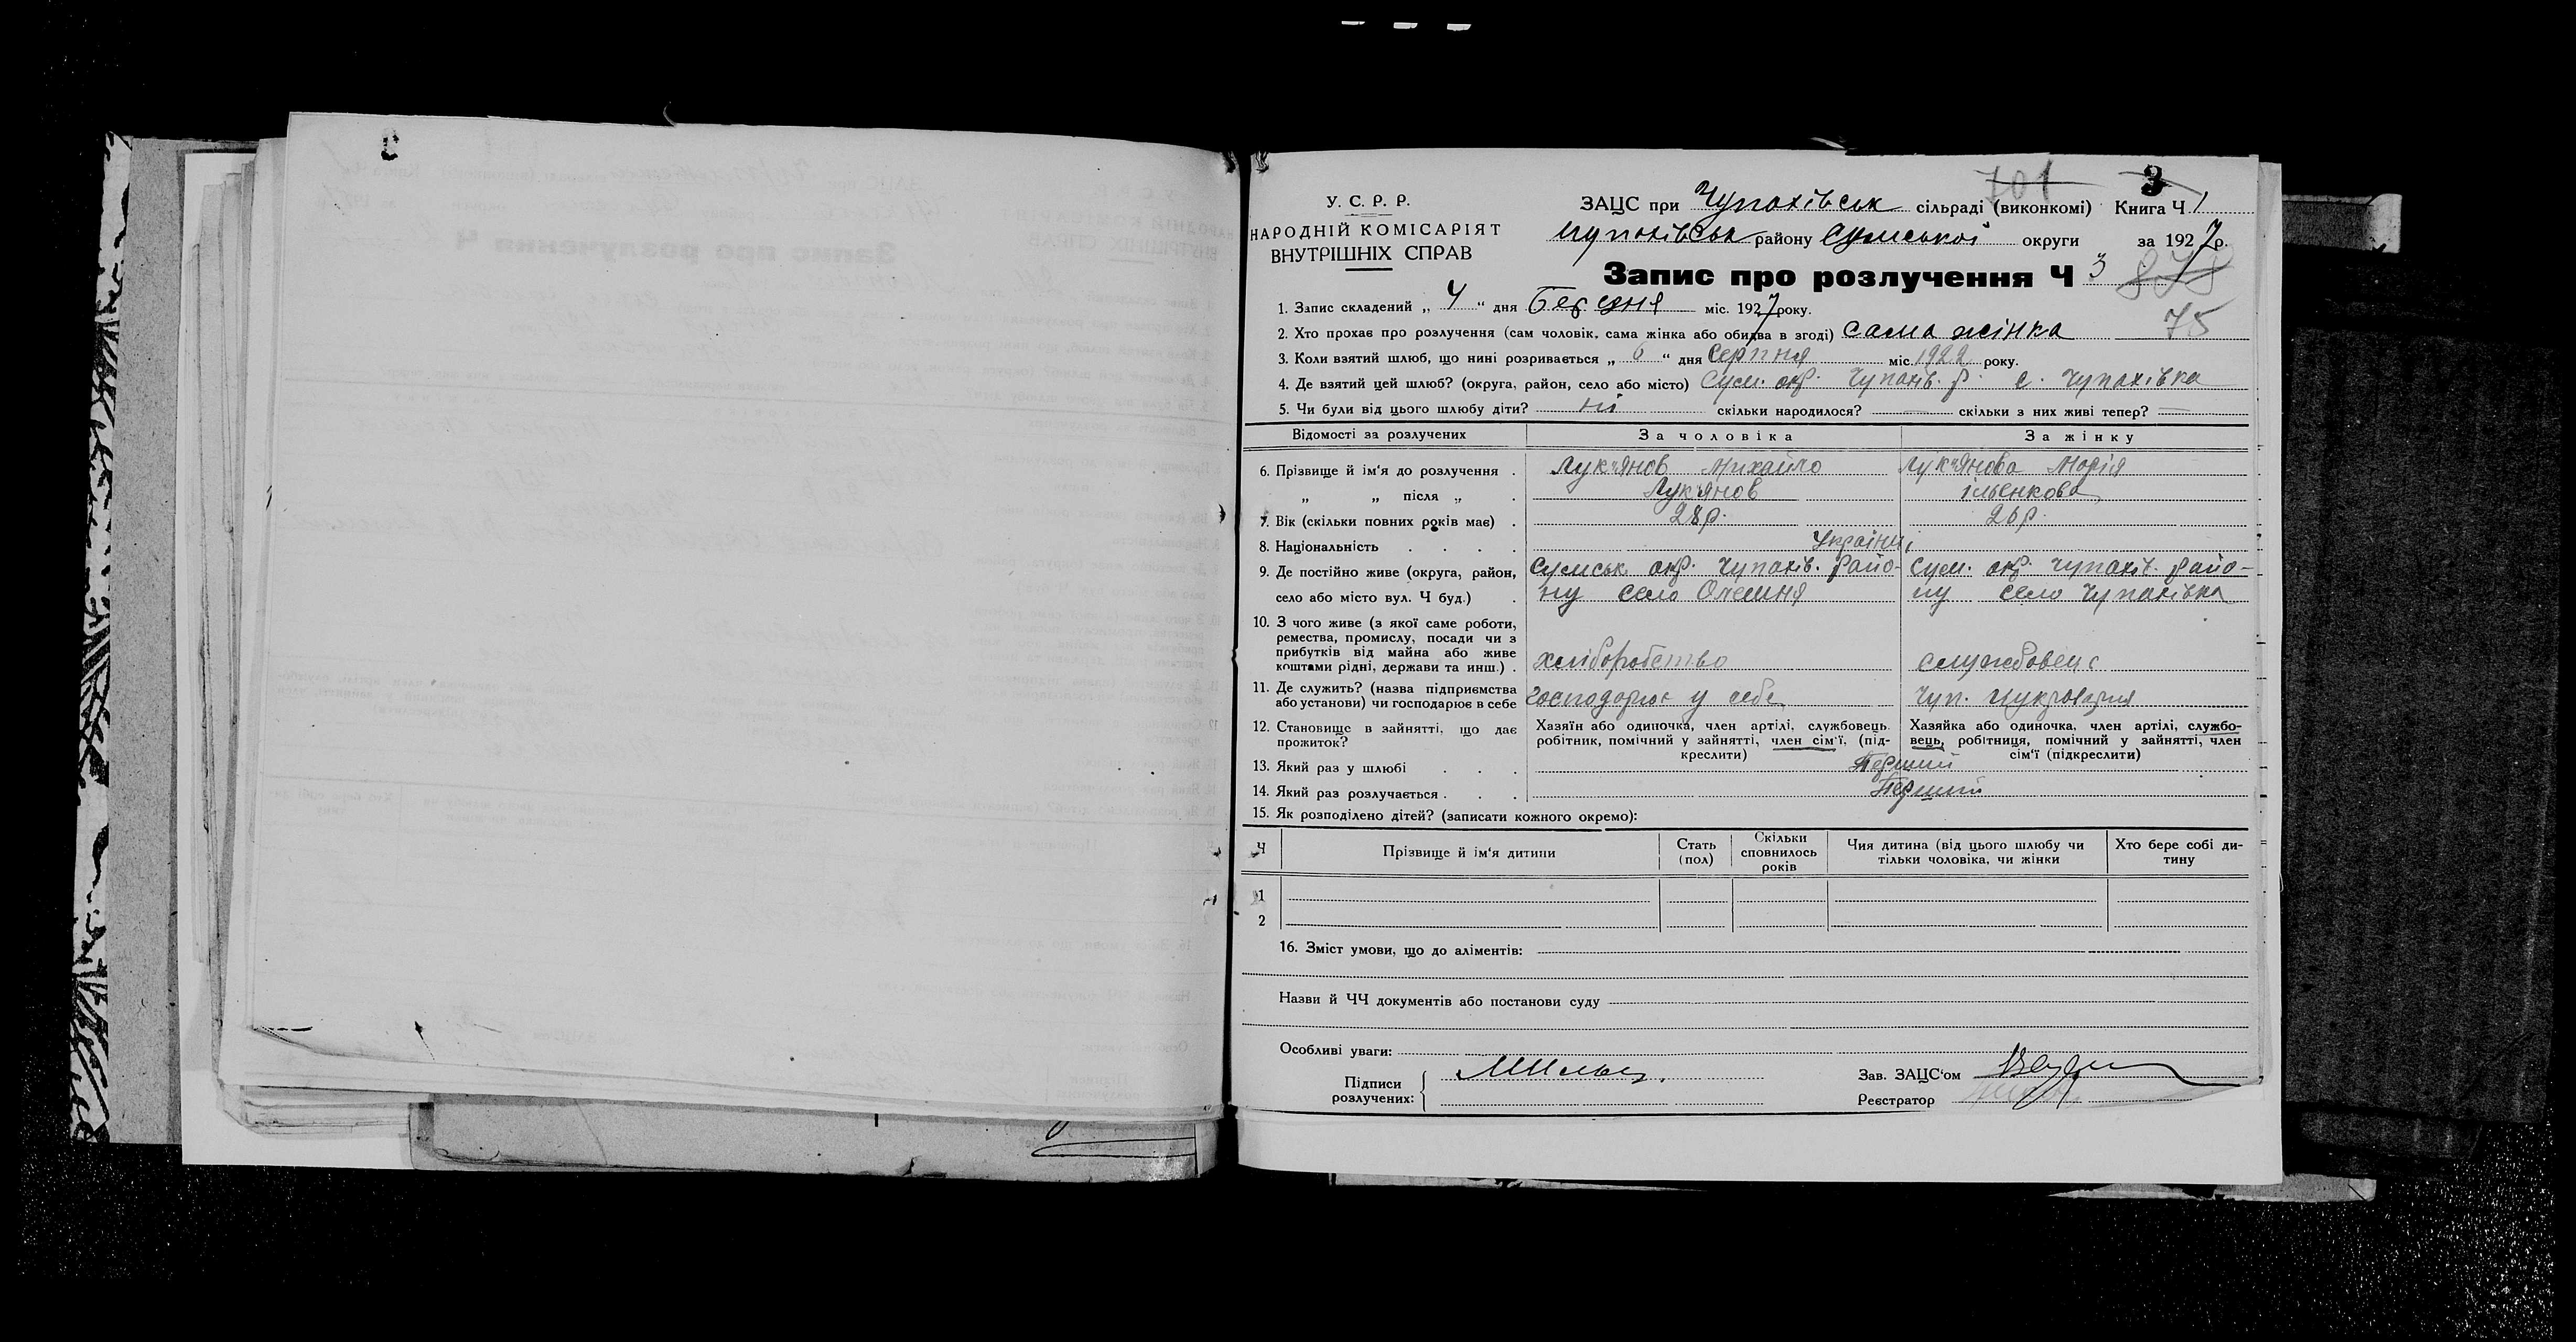 701 3
У. С. Р. Р.
НАРОДНІЙ КОМІСАРІЯТ
ВНУТРІШНІХ СПРАВ
ЗАЦС при Чупахівськ сільраді (виконкомі) Книга Ч 1
Чупахівськ району Сумської округи за 1927 р.
Запис про розлучення Ч 3 878
75
1. Запис складений „ 4 “ дня Березня міс. 1927 року.
2. Хто прохає про розлучення (сам чоловік, сама жінка або обидва в згоді) сама жінка
3. Коли взятий шлюб, що нині розривається „ 6 “ дня серпня міс. 1922 року.
4. Де взятий цей шлюб? (округа, район, село або місто) Сум. окр. Чупахів. р. с. Чупахівка
5. Чи були від цього шлюбу діти? ні скільки народилося? — скільки з них живі тепер? —
Відомості за розлучених За чоловіка За жінку
6. Прізвище й ім‘я до розлучення . Лук'янов Михайло Лук'янова Марія
„ „ після „ . Лук'янов Ільєнкова
7. Вік (скільки повних років має) . 28 р. 26 р.
8. Національність . . . . Українці
9. Де постійно живе (округа, район, Сумськ окр. Чупахів. райо- Сум. окр. Чупахів. райо-
село або місто вул. Ч буд.) . ну село Олешня ну село Чупахівка
10. З чого живе (з якої саме роботи,
ремества, промислу, посади чи з
прибутків від майна або живе
коштами рідні, держави та инш.) . хліборобство службовець
11. Де служить? (назва підприємства
або установи) чи господарює в себе господарює у себе Чуп. Цукроварня
12. Становище в зайнятті, що дає Хазяїн або одиночка, член артілі, службовець Хазяйка або одиночка, член артілі, службо-
прожиток? робітник, помічний у зайнятті, член сім‘ї, (під- вець, робітниця, помічний у зайнятті, член
креслити) сім‘ї (підкреслити)
13. Який раз у шлюбі . . . Перший
14. Який раз розлучається . . . Перший
15. Як розподілено дітей? (записати кожного окремо):
Ч Прізвище й ім‘я дитини Стать (пол) Скільки сповнилось років Чия дитина (від цього шлюбу чи тільки чоловіка, чи жінки Хто бере собі дитину
1
2
16. Зміст умови, що до аліментів:
Назви й ЧЧ документів або постанови суду
Особливі уваги:
Підписи
розлучених:
Зав. ЗАЦС‘ом
Реєстратор